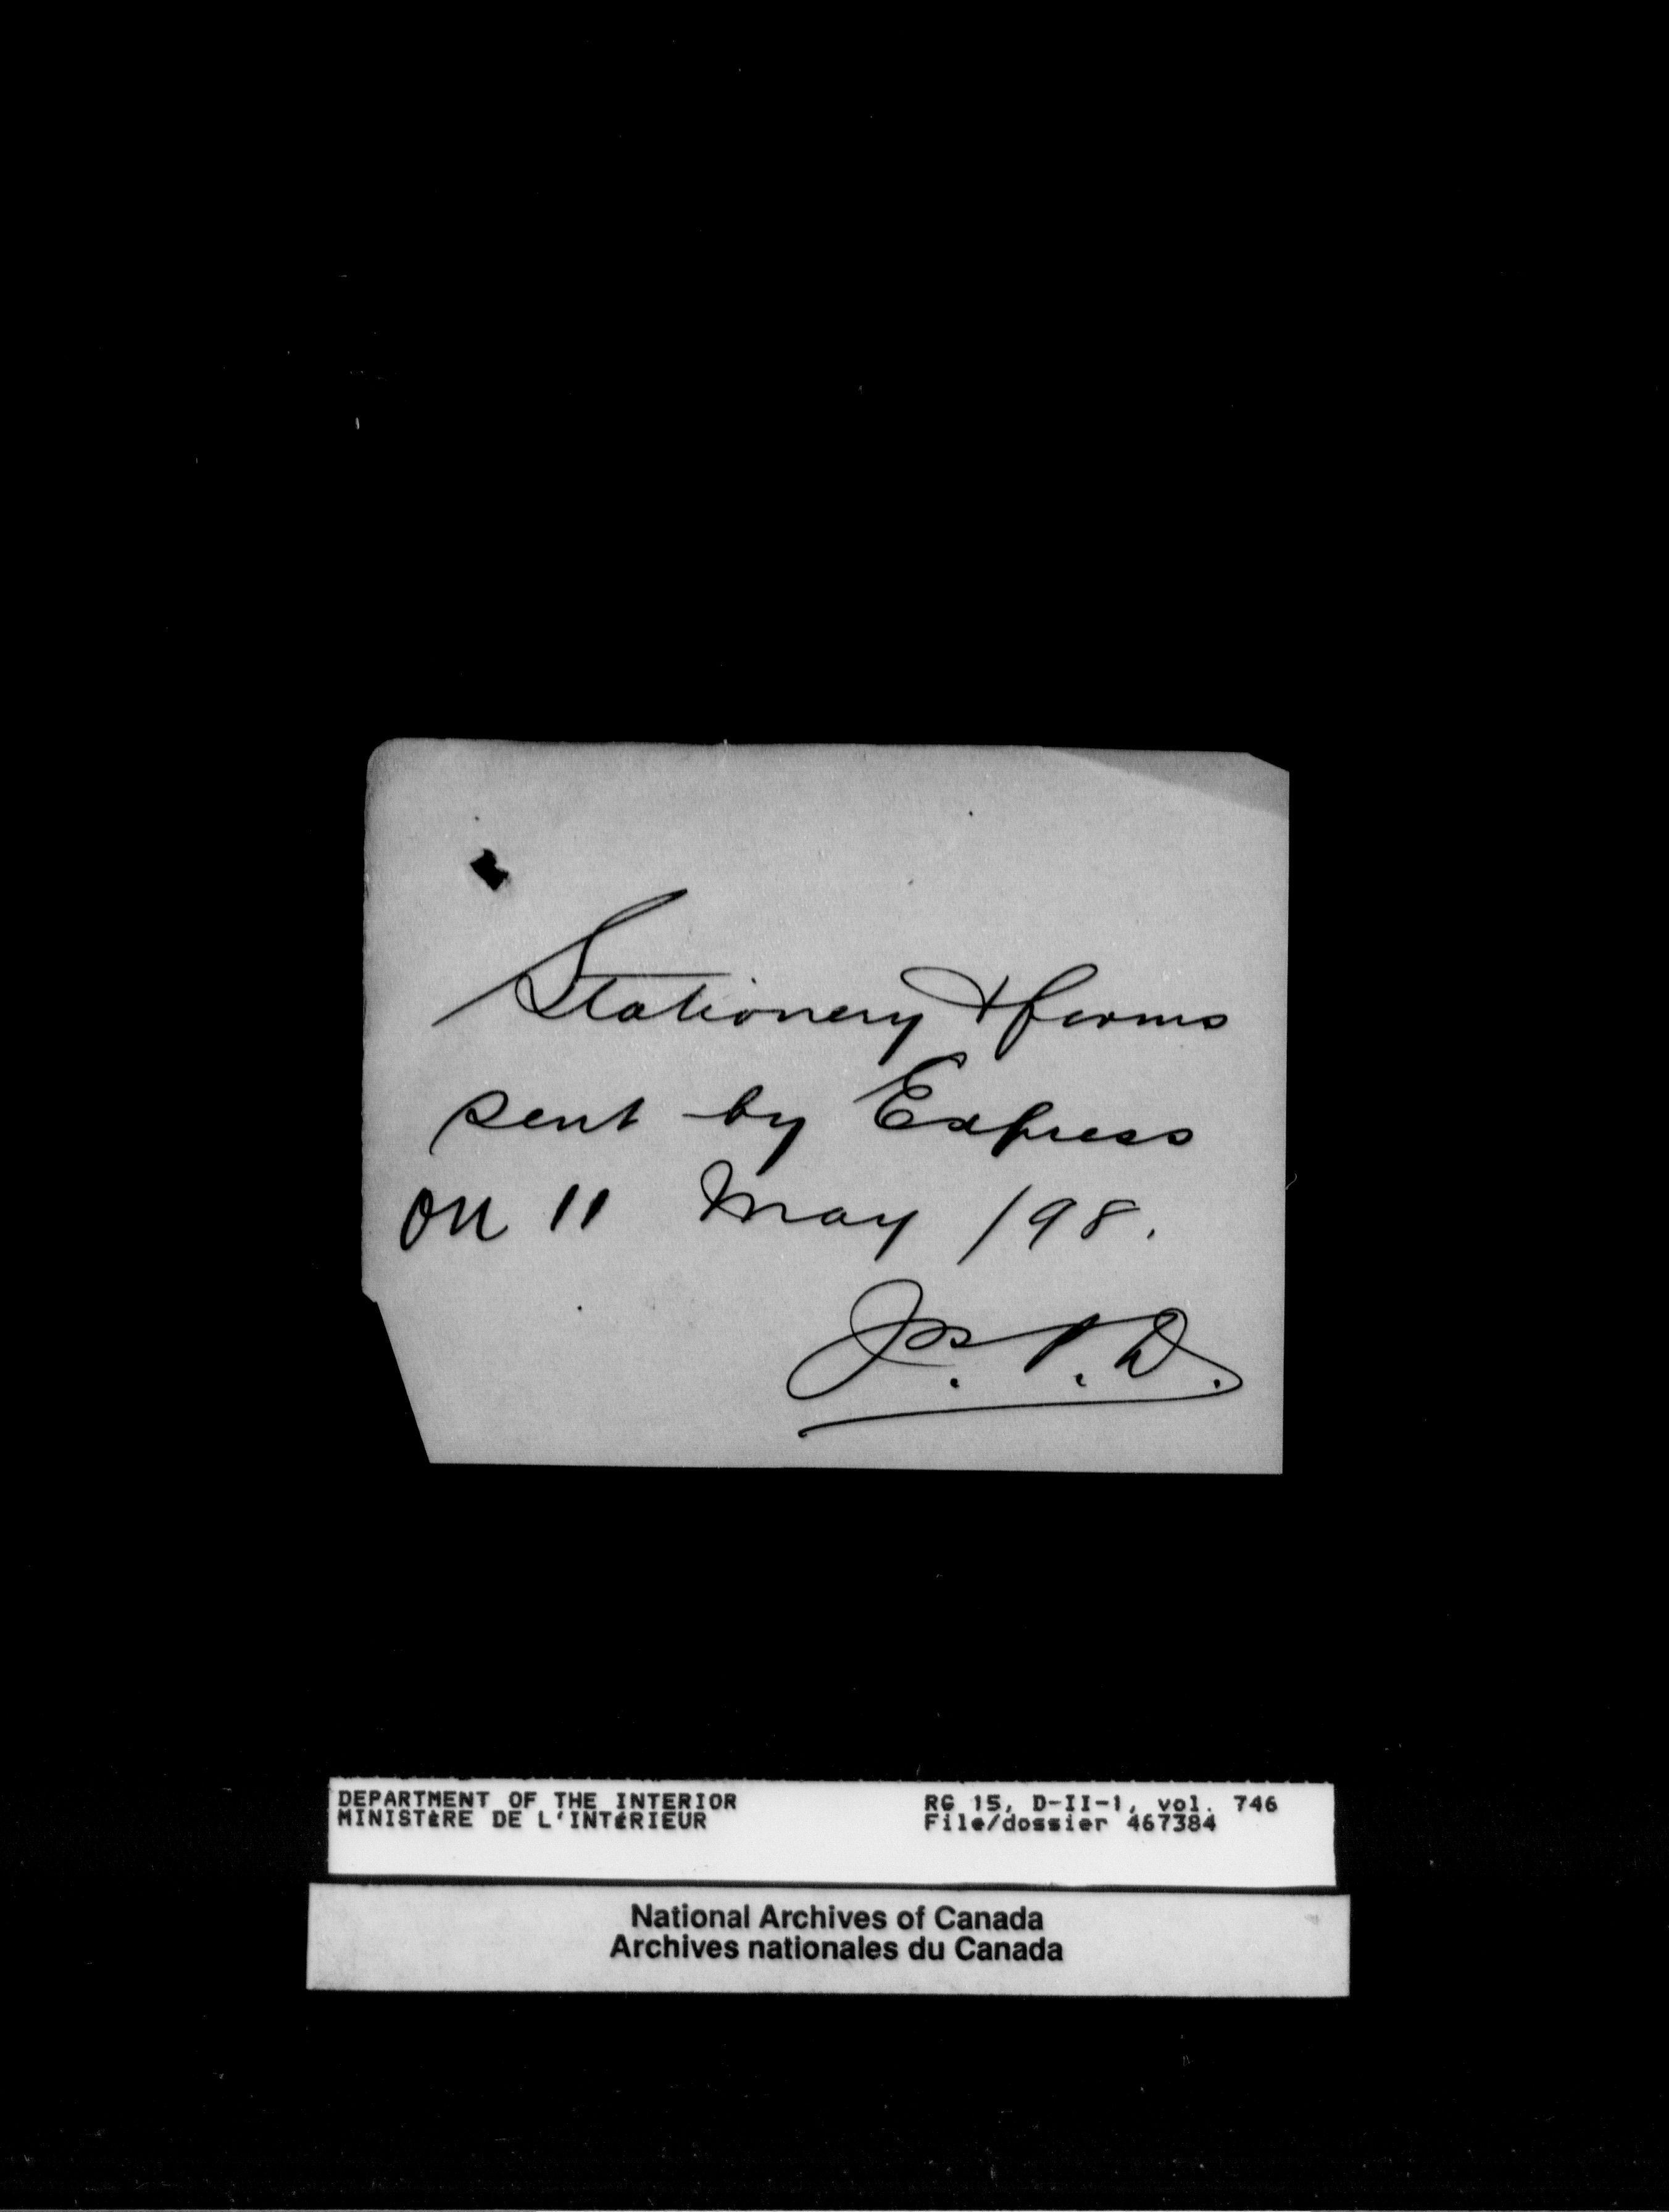 Stationery & forms
sent by Express
on 11 May /98.
Jos. P. D.
DEPARTMENT OF THE INTERIOR RG 15, D-II-1, vol. 746
MINISTèRE DE L'INTéRIEUR File/dossier 467384
National Archives of Canada
Archives nationales du Canada